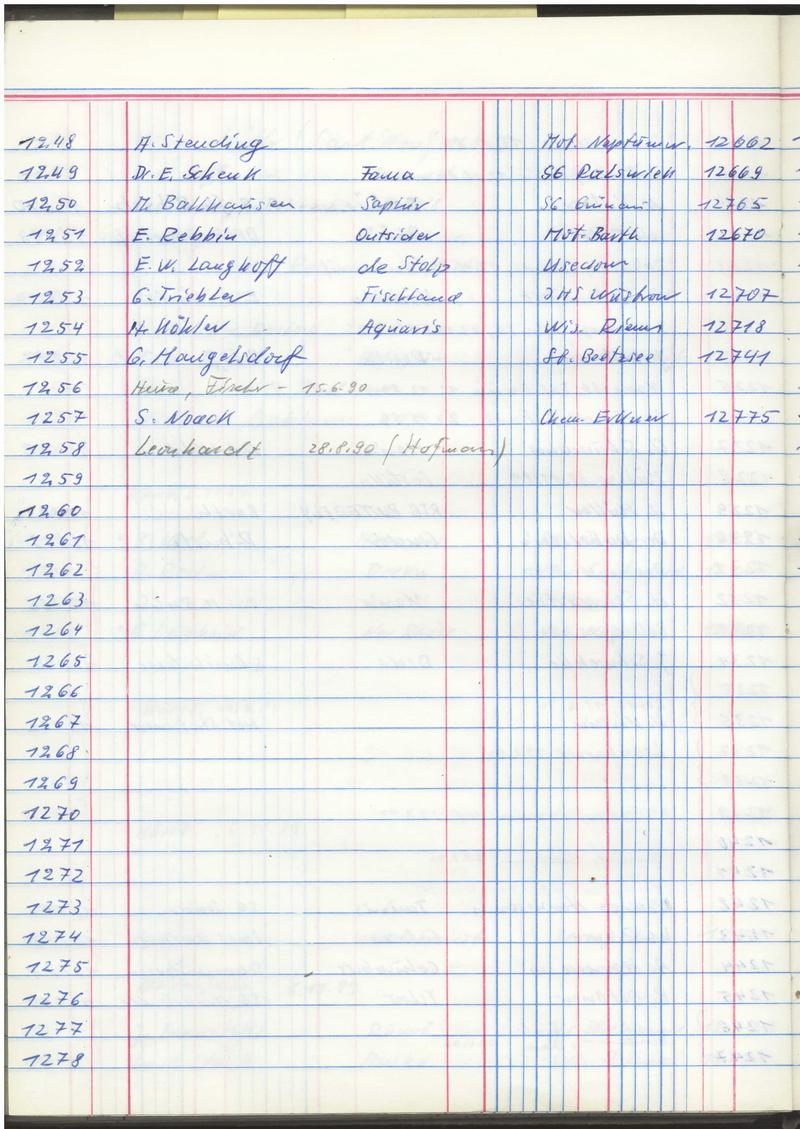 1248 A. Stending Mot. Neptunw. 12662
1249 Dr. E. Schenk Fama SG Ralswiek 12669
1250 M. Ballhausen Saphir SG Grünau 12765
1251 E. Rebbin Outsider Mot. Barth 12670
1252 E. W. Langhoff de Stolp Usedom
1253 G. Triebler Fischland IHS Wustrow 12707
1254 H. Köhler Aquaris Wis. Riems 12718
1255 G. Mangelsdorf Beetzsee 12741
1256 15.6.90
1257 S. Noack Chem. Erkner 12775
1258 Leonhardt 28.8.90 (Hofmann)
1259
1260
1261
1262
1263
1264
1265
1266
1267
1268
1269
1270
1271
1272
1273
1274
1275
1276
1277
1278